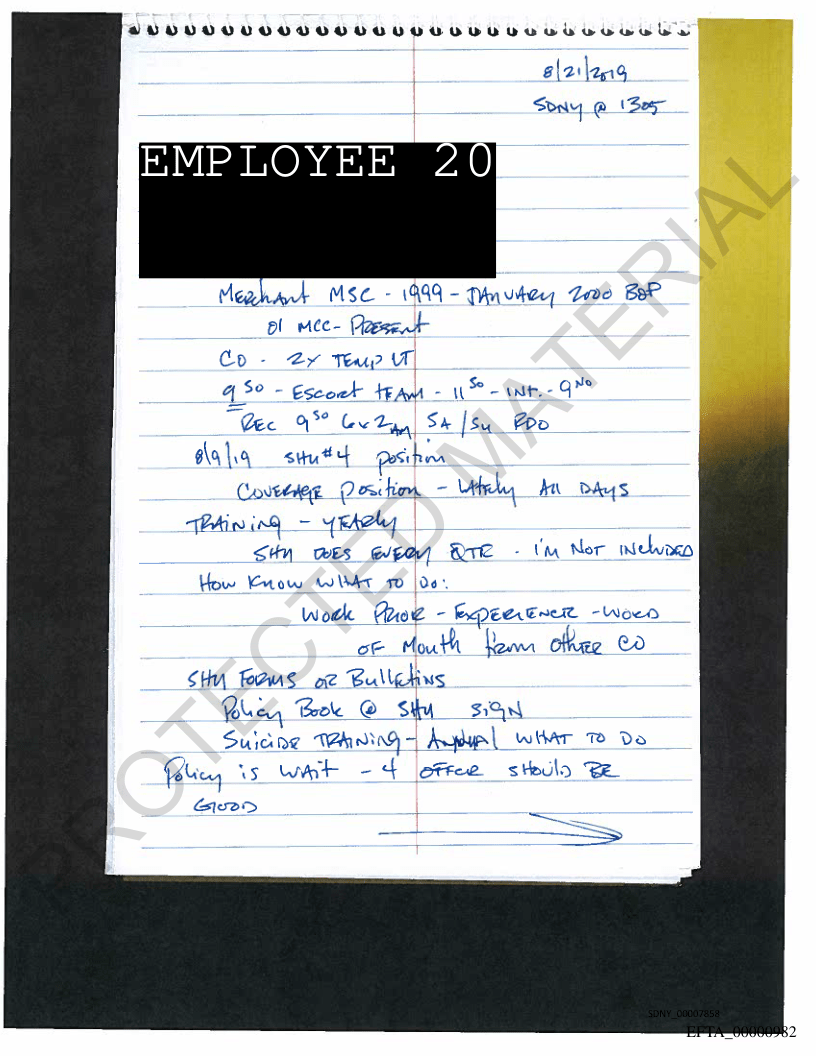 8/21/2019
SDNY @ 1305
EMPLOYEE 20
Merchant MSC - 1999 - January 2000 BOP
01 MCC - Present
CO - 2x Temp LT
9 SO - Escort team - 11 SO - INT. - 9 NO
Rec 9 SO 6x2 AM SA/SU RDO
8/9/19 SHU #4 position
Coverage position - Lately All Days
Training - yearly
SHU does every QTR - I'm not included
How know what to do:
Work Prior - Experience - word
of mouth from other CO
SHU Forms or Bulletins
Policy Book @ SHU sign
Suicide Training - Annual what to do
Policy is wait - 4 officer should be
good
PROTECTED MATERIAL
SDNY_00007858
EFTA_00000982